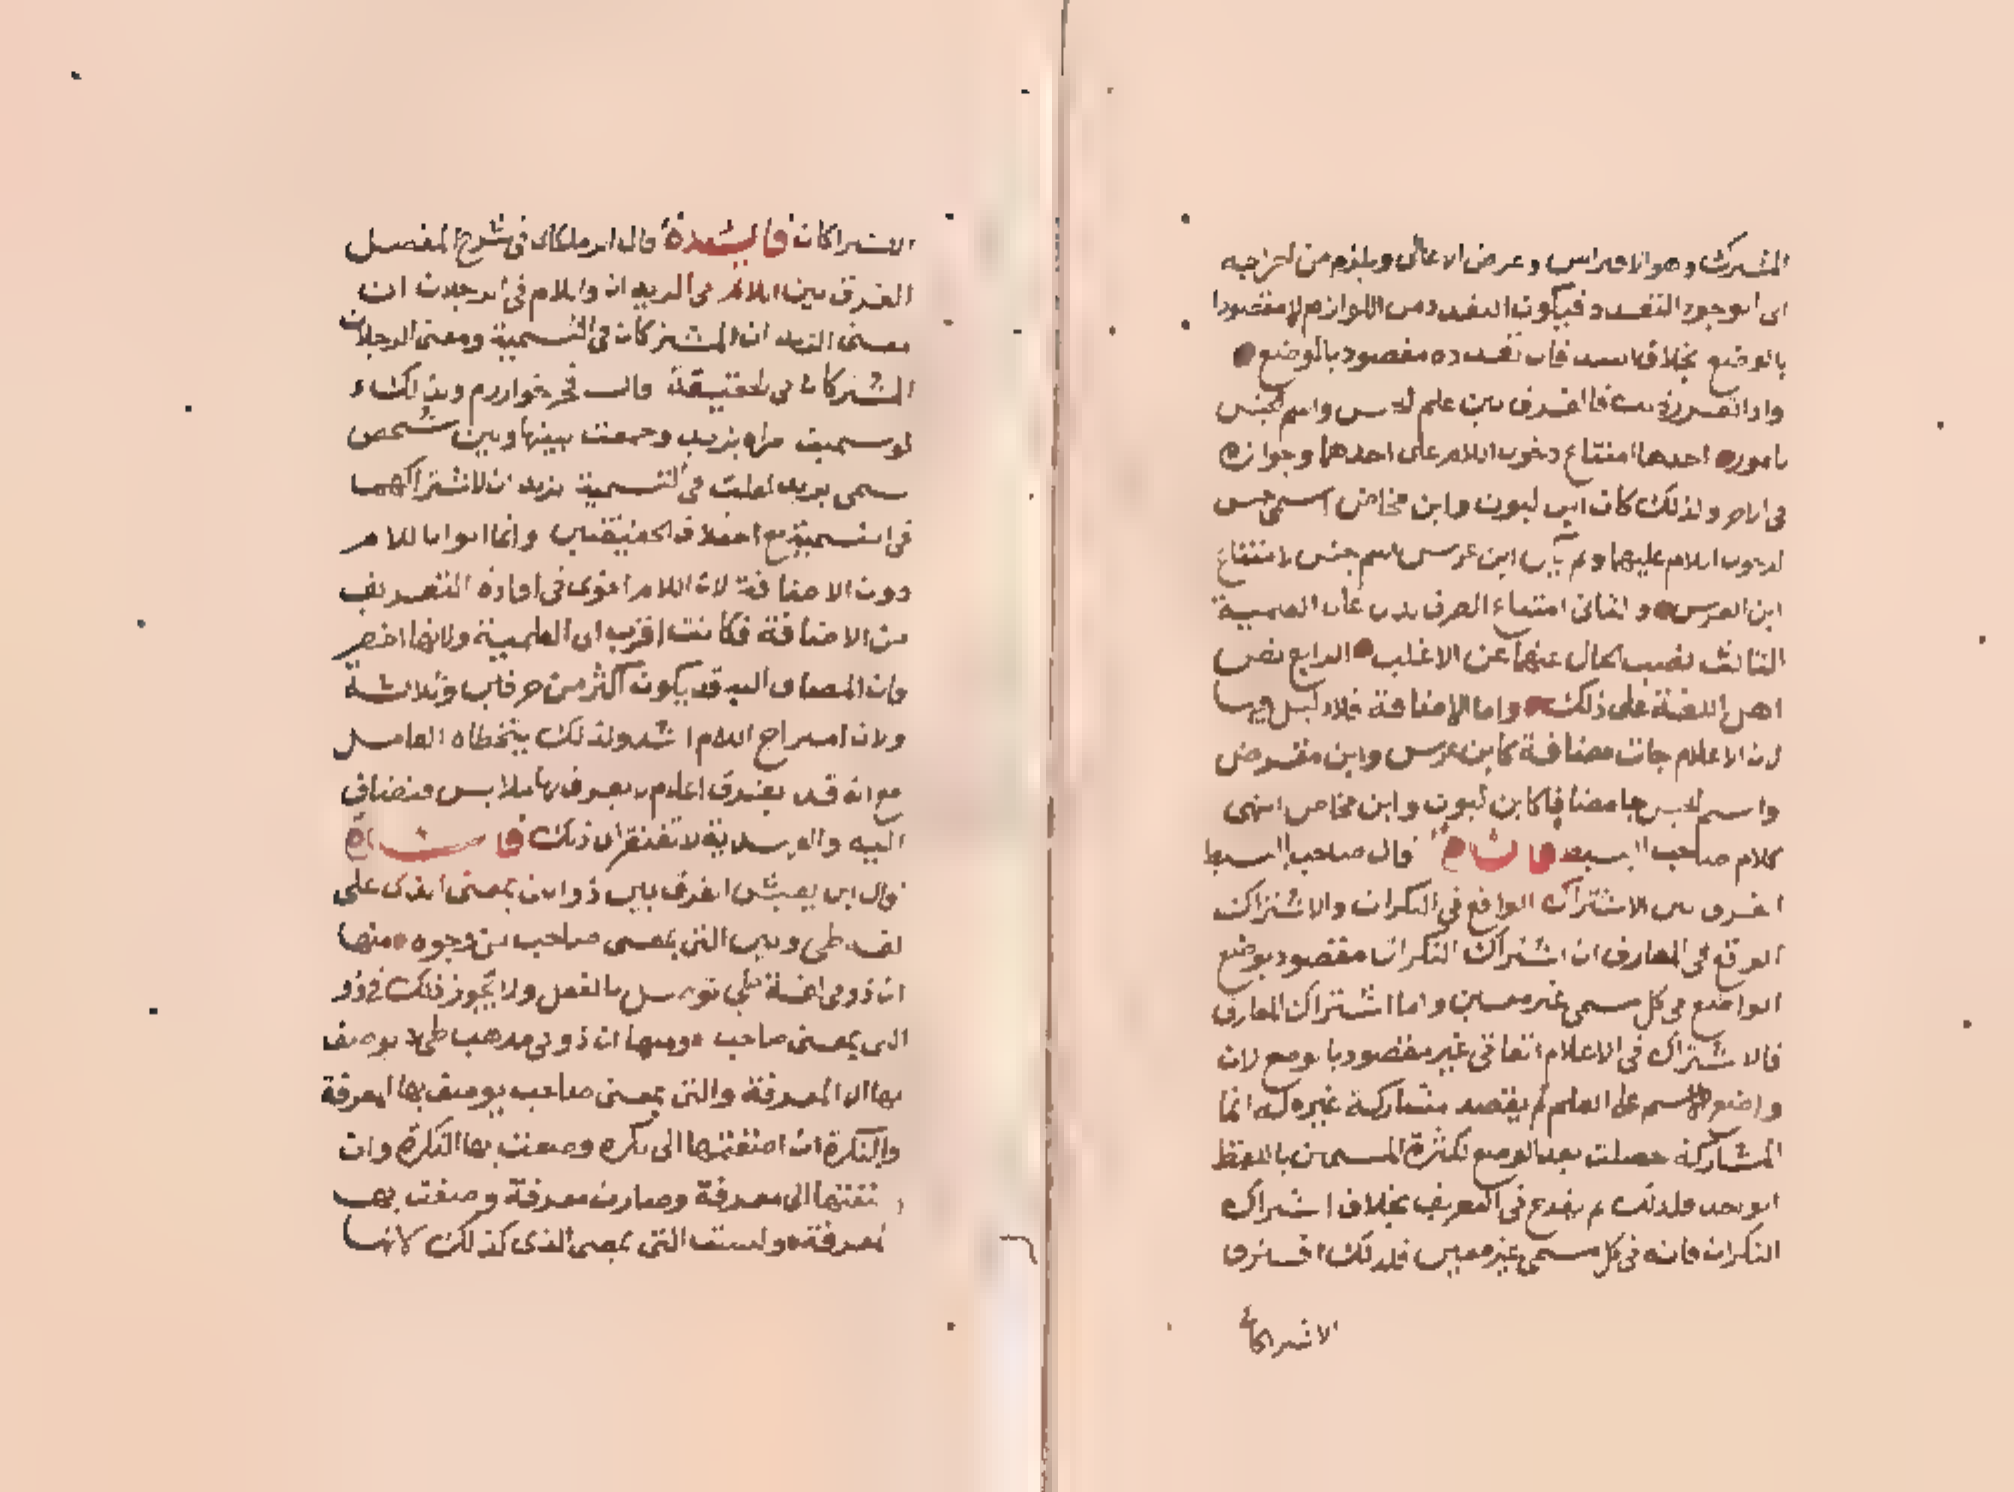 المشترك وهو الافتراس وعرض الاعالى ويلزم من اخراجه
الى الوجود التعدد فيكون التعدد من اللوازم لا مقصودا
بالوضع بخلاف اسد فان تعدده مقصود بالوضع
واذا تقرر ذلك فالفرق بين علم الجنس واسم الجنس
بامور احدها امتناع دخول اللام على احدهما وجوازه
فى الاخر ولذلك كان ابن لبون وابن مخاض اسمى جنس
لدخول اللام عليهما ولم يكن ابن عرس اسم جنس لامتناع
ابن العرس والثانى امتناع الصرف يدل على العلمية
الثالث نصب الحال عنها عن الاغلب الرابع نص
اهل اللغة على ذلك واما الاضافة فلا دليل فيها
لان الاعلام جات مضافة كابن عرس وابن مقرض
واسم الجنس جا مضافا كابن لبون وابن مخاض انتهى
كلام صاحب البسيط قال صاحب البسيط
الفرق بين الاشتراك الواقع فى النكرات والاشتراك
الواقع فى المعارف ان اشتراك النكرات مقصود بوضع
الواضع فى كل مسمى غير معين واما اشتراك المعارف
فالاشتراك فى الاعلام اتفاقى غير مقصود بالوضع لان
واضع الاسم على العلم لم يقصد مشاركة غيره له انما
المشاركة حصلت بعد الوضع لكثرة المسمين باللفظ
الواحد فلذلك لم يقدح فى التعريف بخلاف اشتراك
النكرات فانه فى كل مسمى غير معين فلذلك افترق
الاشتراكان
الاشتراكان فائدة قال الزملكانى فى شرح المفصل
الفرق بين اللام فى الزيدان واللام فى الرجلان ان
معنى الزيدان المشتركان فى التسمية ومعنى الرجلان
المشتركان فى الحقيقة قال فخر خوارزم
لو سميت امراة بزيد وجمعت بينها وبين شخص
سمى بزيد لقلت فى التسمية الزيدان لاشتراكهما
فى التسمية مع اختلاف الحقيقتين وانما اتوا باللام
دون الاضافة لان اللام اقوى فى افادة التعريف
من الاضافة فكانت اقرب الى العلمية ولانها اخصر
فان المضاف اليه قد يكون اكثر من حرفين وثلاثة
ولان امتزاج اللام اشد ولذلك يتخطاه العامل
مع انه قد يفترق اعلام لا يعرف لها ملابس فتضاف
اليه والعهدية لا تفتقر الى ذلك
قال ابن يعيش الفرق بين ذو التى بمعنى الذى على
لغة طى وبين التى بمعنى صاحب من وجوه منها
ان ذو فى لغة طى توصل بالفعل ولا يجوز ذلك فى ذو
التى بمعنى صاحب ومنها ان ذو فى مذهب طى لا يوصف
بها الا المعرفة والتى بمعنى صاحب يوصف بها المعرفة
والنكرة ان اضفتها الى نكرة وصفت بها النكرة وان
اضفتها الى معرفة وصارت معرفة وصفت بها
المعرفة وليست التى بمعنى الذى كذلك لانها